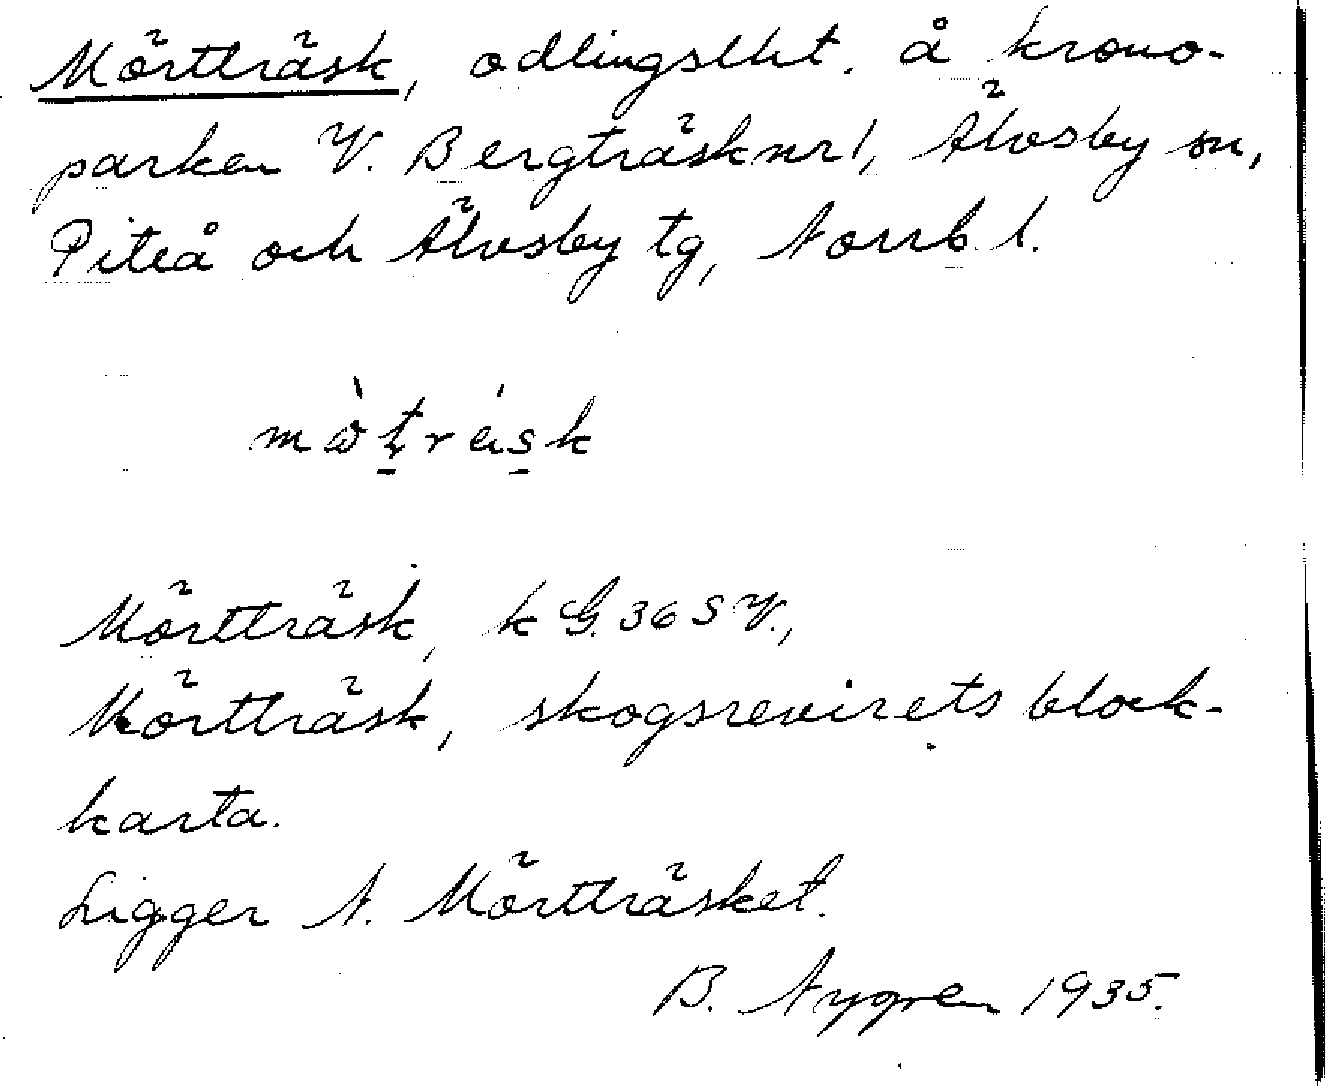 Mörtträsk, odlingslht. å krono-
parken V. Bergträsk nr 1, Älvsby sn,
Piteå och Älvsby tg, Norrb. l.
Mörtträsk, k G. 36 SV.,
Mörtträsk, skogsrevirets block-
karta.
Ligger N. Mörtträsket.
B. Nygren 1935.